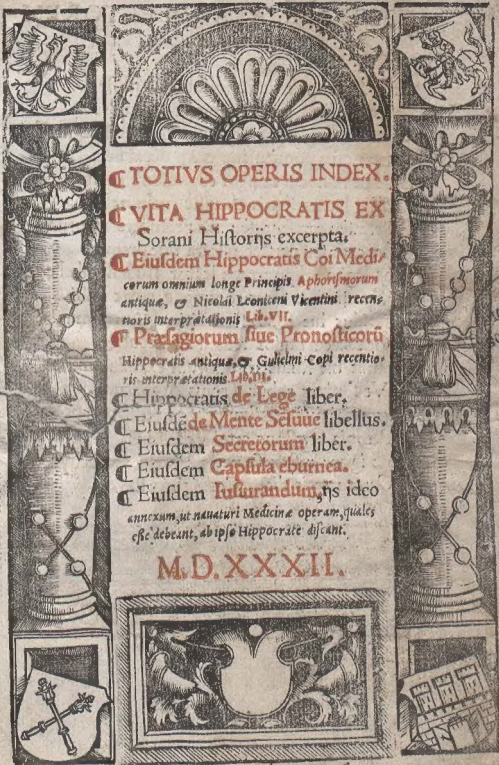 ¶ TOTIVS OPERIS INDEX.
¶ VITA HIPPOCRATIS EX
Sorani Historijs excerpta.
¶ Eiusdem Hippocratis Coi Medi/
corum omnium longe Principis Aphorismorum
antiquæ, & Nicolai Leoniceni Vicentini recen=
tioris interprætationis Lib. VII.
¶ Præsagiorum siue Pronosticorū
Hippocratis antiquæ, & Gulielmi Copi recentio=
ris interprætationis Lib. III.
¶ Hippocratis de Lege liber.
¶ Eiusdē de Mente Sēsuue libellus.
¶ Eiusdem Secretorum liber.
¶ Eiusdem Capsula eburnea.
¶ Eiusdem Iusiurandum, ijs ideo
annexum, ut nauaturi Medicinæ operam, quales
esse debeant, ab ipso Hippocrate discant.
M.D.XXXII.